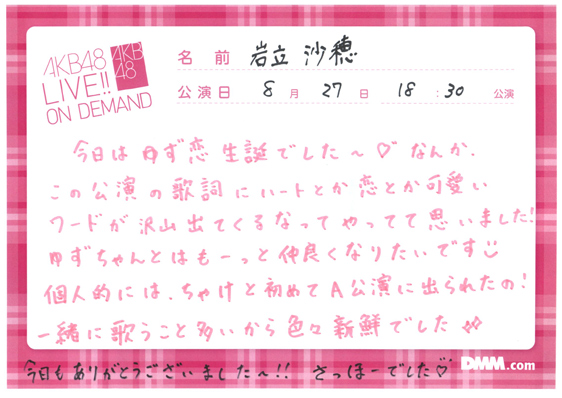 AKB48
LIVE!!
ON DEMAND
AKB
48
名前 岩立 沙穂
公演日 8月27日 18:30 公演
今日はゆず恋生誕でした〜♡なんか、
この公演の歌詞にハートとか恋とか可愛い
ワードが沢山出てくるなってやってて思いました!
ゆずちゃんとはもーっと仲良くなりたいです
個人的には、ちゃけと初めてA公演に出られたの!
一緒に歌うこと多いから色々新鮮でした
今日もありがとうございました〜!! さっほーでした♡
DMM.com